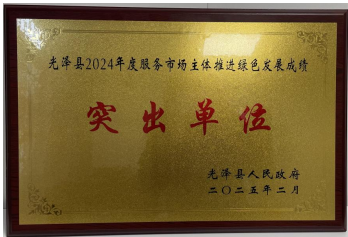 光泽县2024年度服务市场主体推进绿色发展成绩
突出单位
光泽县人民政府
二〇二五年二月